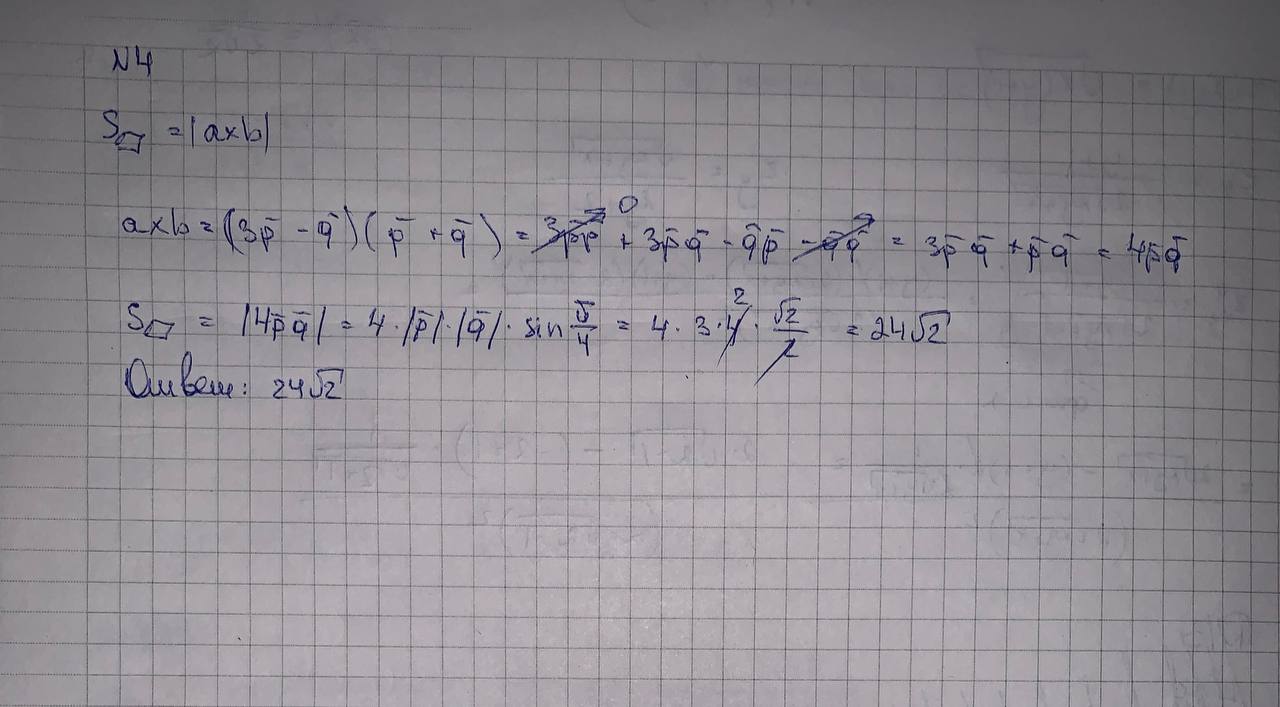 N4
S▱ = |a×b|
a×b = (3p̄ - q̄)(p̄ + q̄) = 3p̄p̄ 0 + 3p̄q̄ - q̄p̄ - q̄q̄ = 3p̄q̄ + p̄q̄ = 4p̄q̄
S▱ = |4p̄q̄| = 4·|p̄|·|q̄|· sin π/4 = 4·3·4 2 · √2/2 = 24√2
Ответ: 24√2